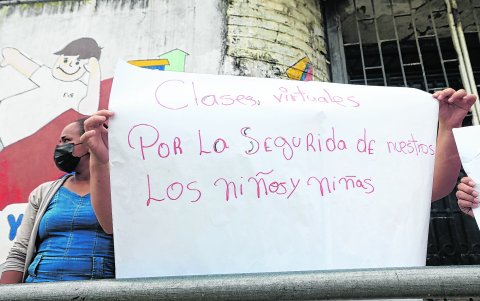 Clases, virtuales
Por la Segurida de nuestros
Los niños y niñas